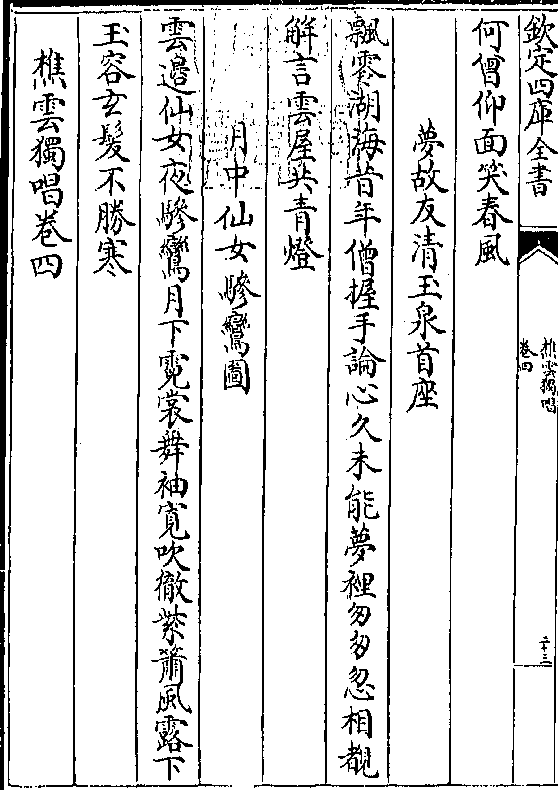 欽定四庫全書
樵雲獨唱
卷四
二十三
何僧仰面笑春風
夢故友清玉泉首座
飄零湖海昔年僧握手論心久未能夢裡匆匆忽相覩
解言雲屋共青燈
月中仙女驂鸞圖
雲邉仙女夜驂鸞月下霓裳舞袖寛吹徹紫簫風露下
玉容玄髮不勝寒
樵雲獨唱卷四